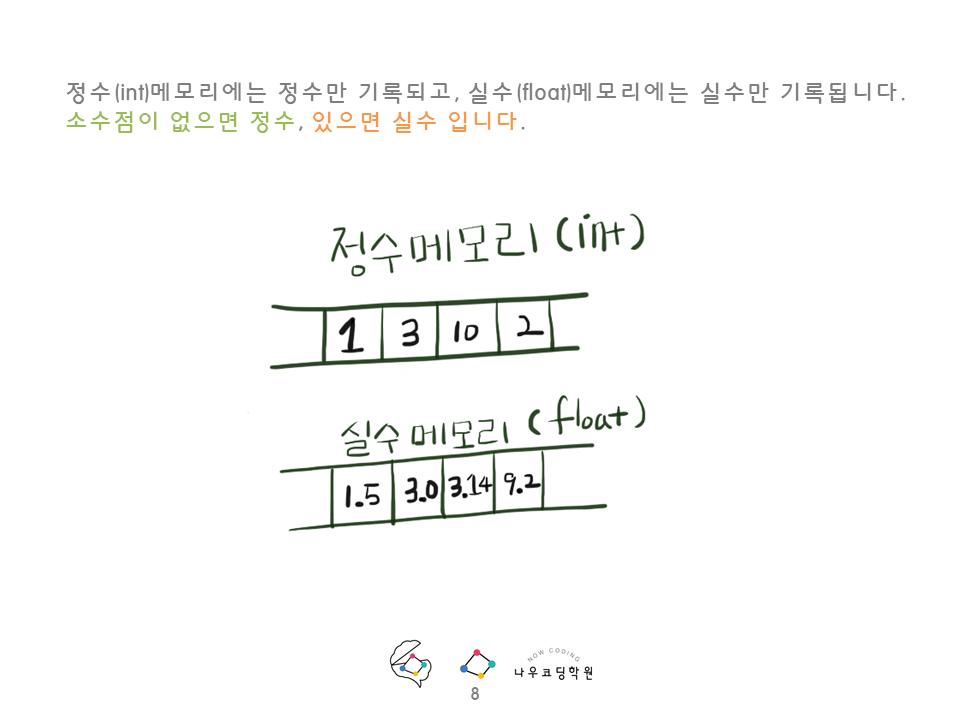 정수(int)메모리에는 정수만 기록되고, 실수(float)메모리에는 실수만 기록됩니다.
소수점이 없으면 정수, 있으면 실수 입니다.
정수메모리 (int)
1 3 10 2
실수 메모리 (float)
1.5 3.0 3.14 9.2
NOW CODING
나우코딩학원
8